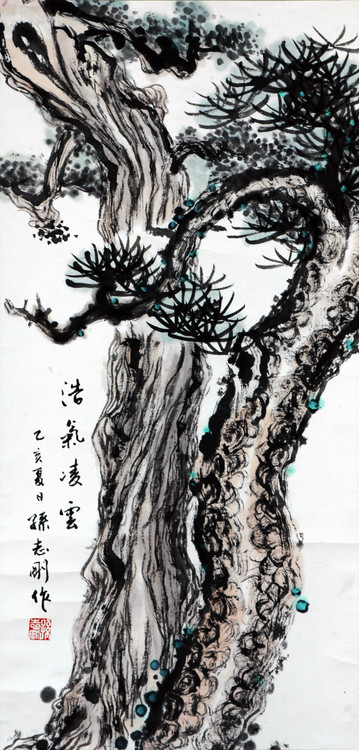 浩氣凌雲
乙亥夏日孫志剛作